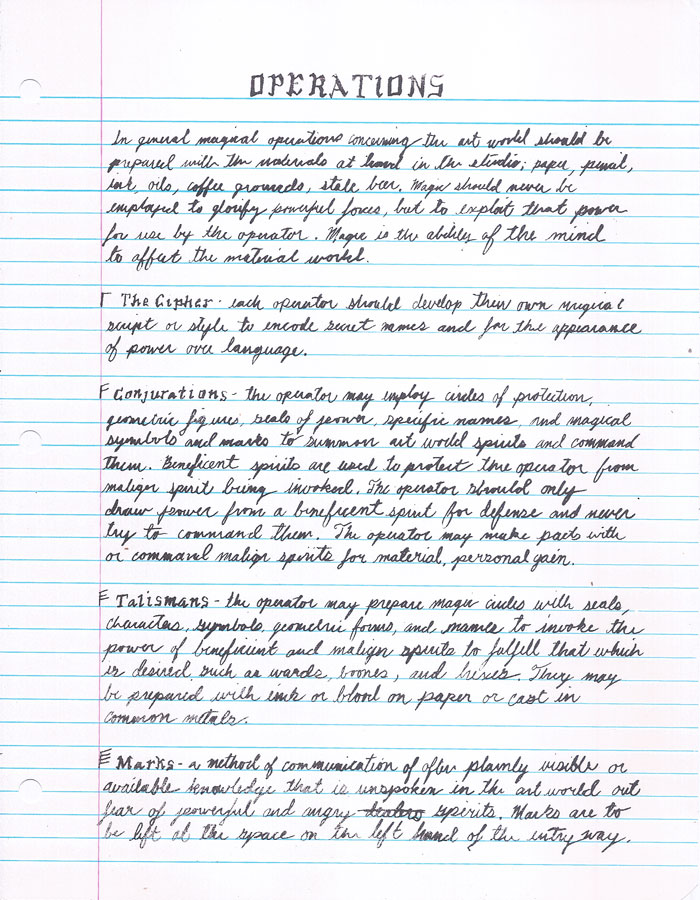 OPERATIONS
In general magical operations concerning the art world should be
prepared with the materials at hand in the studio; paper, pencil,
ink, oils, coffee grounds, stale beer. Magic should never be
employed to glorify powerful forces, but to exploit that power
for use by the operator. Magic is the ability of the mind
to affect the material world.
The Cipher - each operator should develop their own magical
script or style to encode secret names and for the appearance
of power over language.
Conjurations - the operator may employ circles of protection,
geometric figures, seals of power, specific names, and magical
symbols and marks to summon art world spirits and command
them. Beneficent spirits are used to protect the operator from
malign spirit being invoked. The operator should only
draw power from a beneficent spirit for defense and never
try to command them. The operator may make pacts with
or command malign spirits for material, personal gain.
Talismans - the operator may prepare magic circles with seals,
characters, symbols, geometric forms, and names to invoke the
power of beneficient and malign spirits to fulfill that which
is desired, such as wards, boones, and hexes. They may
be prepared with ink or blood on paper or cast in
common metals.
Marks - a method of communication of often plainly visible or
available knowledge that is unspoken in the art world out
fear of powerful and angry dealers spirits. Marks are to
be left at the space on the left hand of the entry way.